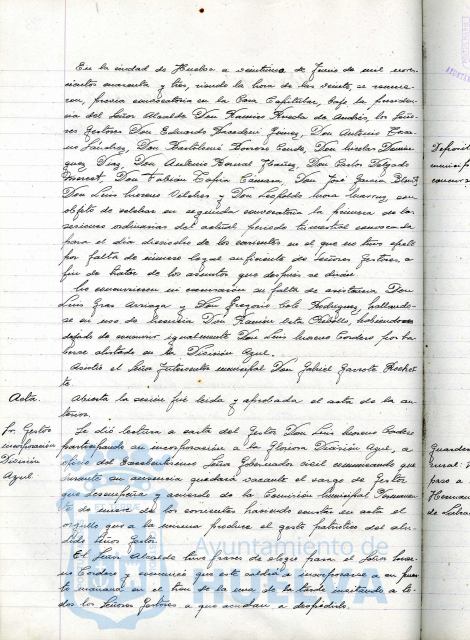 En la ciudad de Huelva a veintiuno de Junio de mil nove-
cientos cuarenta y tres, siendo la hora de las veinte, se reunie-
ron, previa convocatoria en la Casa Capitular, bajo la presiden-
cia del Señor Alcalde Don Ramiro de Andrés, los Seño-
res Gestores Don Eduardo Gómez, Don Antonio
Sánchez, Don Bartolomé Conde, Don Domín-
guez Díaz, Don Antonio Bernal Don Carlos Delgado
Don Fabián Tapia Don José García
Don Luis Moreno y Don Leopoldo Mora con
objeto de celebrar en segunda convocatoria la primera de las
sesiones ordinarias del actual periodo trimestral convocada
para el día dieciocho de los corrientes en el que no tuvo efecto
por falta de número legal suficiente de Señores Gestores, a
fin de tratar de los asuntos que después se dirán.
No concurrieron ni excusaron su falta de asistencia Don
Luis Arriaga y Don Gregorio Solé Rodríguez, hallándo-
se en uso de licencia Don Ramón habiendo
dejado de concurrir igualmente Don Luis Moreno Cordero por ha-
berse alistado en la División Azul.
Asistió el Señor Interventor municipal Don Gabriel Garrote
Acta.
Abierta la sesión fué leída y aprobada el acta de la an-
terior.
Gestor
incorporación
División
Azul
Se dió lectura a carta del Gestor Don Luis Moreno Cordero
participando su incorporación a la Gloriosa División Azul, a
oficio del Excelentísimo Señor Gobernador civil comunicando que
durante su ausencia quedará vacante el cargo de Gestor
que desempeña y acuerdo de la Comisión Municipal Permanen-
te de nueve de los corrientes haciendo constar en acta el
orgullo que a la misma produce el gesto patriótico del alu-
dido Señor Gestor.
El Señor Alcalde tuvo frases de elogio para el Señor More-
no Cordero, y comunicó que este saldrá a incorporarse a su
mañana en el tren de la una de la tarde invitando a to-
dos los Señores Gestores a que acudan a despedirlo.
Ayuntamiento de
HUELVA